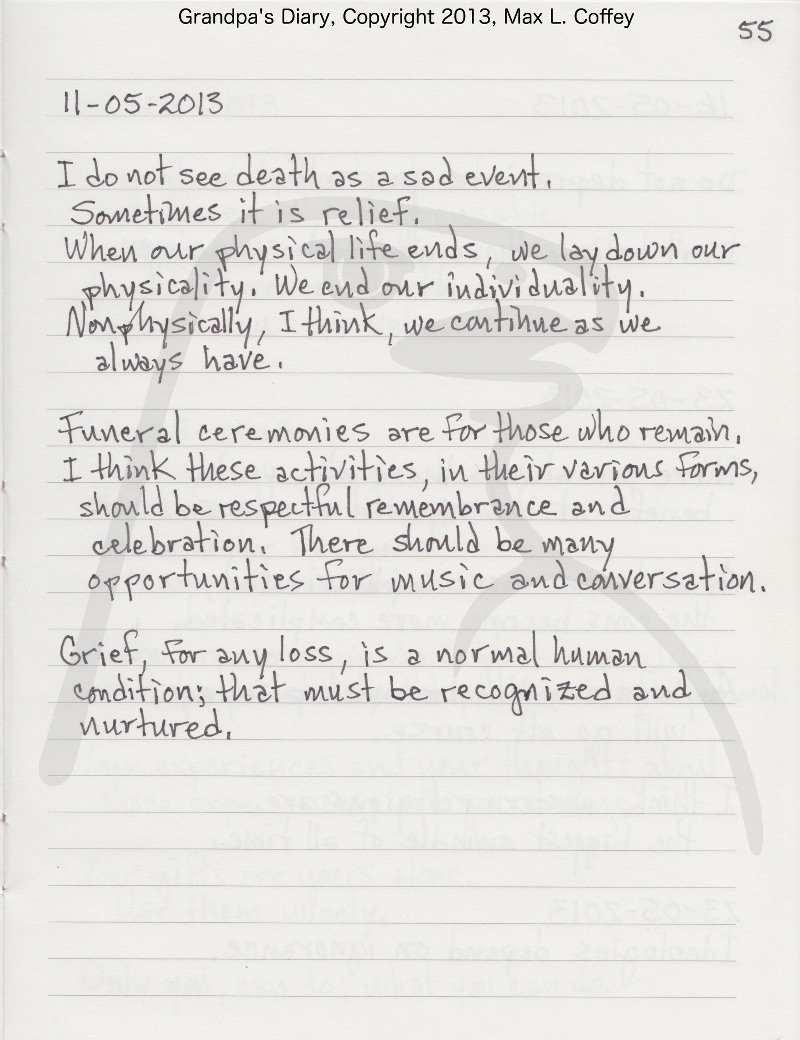 Grandpa's Diary, Copyright 2013, Max L. Coffey
55
11-05-2013
I do not see death as a sad event.
Sometimes it is relief.
When our physical life ends, we lay down our
physicality. We end our individuality.
Nonphysically, I think, we continue as we
always have.
Funeral ceremonies are for those who remain.
I think these activities, in their various forms,
should be respectful remembrance and
celebration. There should be many
opportunities for music and conversation.
Grief, for any loss, is a normal human
condition; that must be recognized and
nurtured.